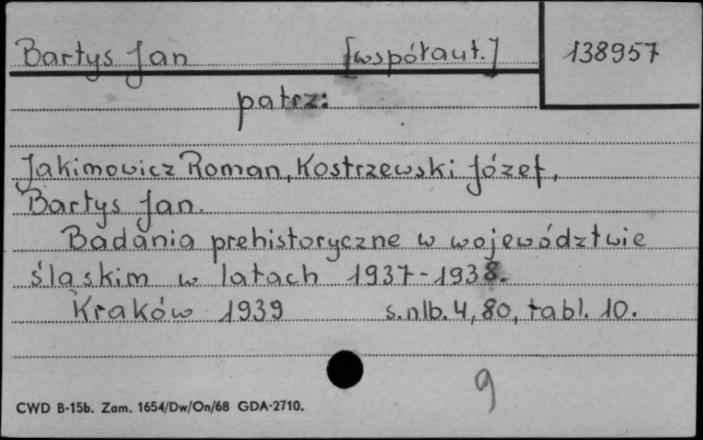 Bartys Jan [współaut.] 138957
patrz:
Jakimowicz Roman, Kostrzewski Józef,
Bartys Jan.
Badania prehistoryczne w województwie
śląskim w latach 1937-1938.
Kraków 1939 s.nlb.4, 80, tabl. 10.
9
CWD B-15b. Zam. 1654/Dw/On/68 GDA-2710.